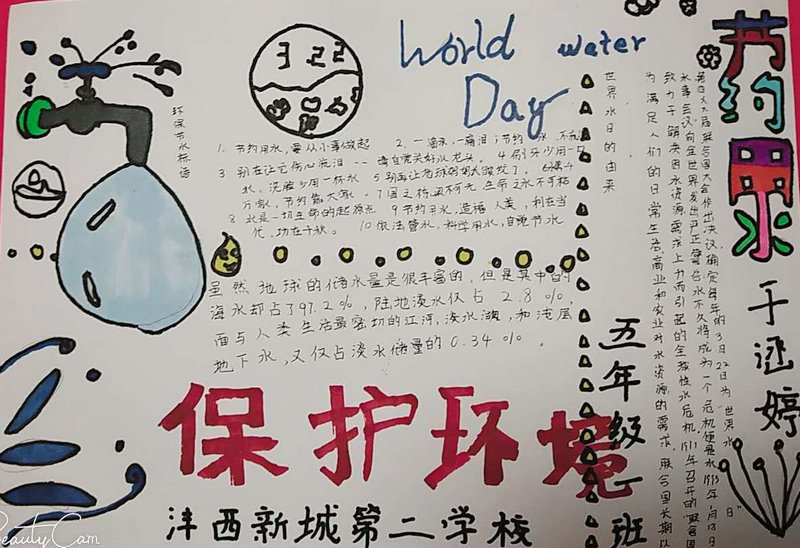 World water
Day
3 22
节约用水
环保节水标语
1. 节约用水，要从小事做起 2. 一滴水，一滴泪；节约水，不
3 别在让它伤心流泪--请自觉关好水龙头。4 刷牙少用一口
水，洗脸少用一杯水 5 别再让地球妈妈太疲惫了。
万家，节约靠大家。7 国之栋梁不可无，生命之水不可枯
8 水是一切生命的起源点 9 节约用水，造福人类，利在当
代，功在千秋。10 依法管水，科学用水，自觉节水
虽然地球的储水量是很丰富的，但是其中的
海水却占了97.2%，陆地淡水仅占2.8%，
面与人类生活最密切的江河，淡水湖，和浅层
地下水，又仅占淡水储量的0.34%。
保护环境
沣西新城第二学校
世界水日的由来
联合国大会作出决议，确定每年的3月22日为世界水日
水事会议向全世界发出严正警告水不久将成为一个
致力于解决因水资源需求上升而引起的全球性水危机，1977年召开的联合国
为满足人们的日常生活，商业和农业对水资源的需求，联合国长期以
五年级一班
BeautyCam